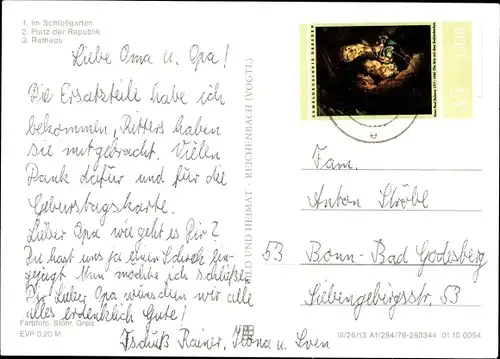 1. Im Schloßgarten
2. Platz der Republik
3. Rathaus
Liebe Oma u. Opa!
Die Ersatzteile habe ich
bekommen, Ritters haben
sie mitgebracht. Vielen
Dank dafür und für die
Geburtstagskarte.
Lieber Opa wie geht es Dir?
Du hast uns ja einen Schreck ein-
gejagt. Nun möchte ich schließen
Dir Lieber Opa wünschen wir alle
alles erdenklich Gute!
Tschüß Rainer, Ilona u. Sven
Farbfoto: Stöhr, Greiz
EVP 0,20 M
BILD UND HEIMAT · REICHENBACH (VOGTL)
GEMÄLDEGALERIE DRESDEN
DDR
Fam.
Anton Ströbl
53 Bonn-Bad Godesberg
Siebengebirgsstr. 53
III/26/13 A1/284/76-280344 01 10 0054